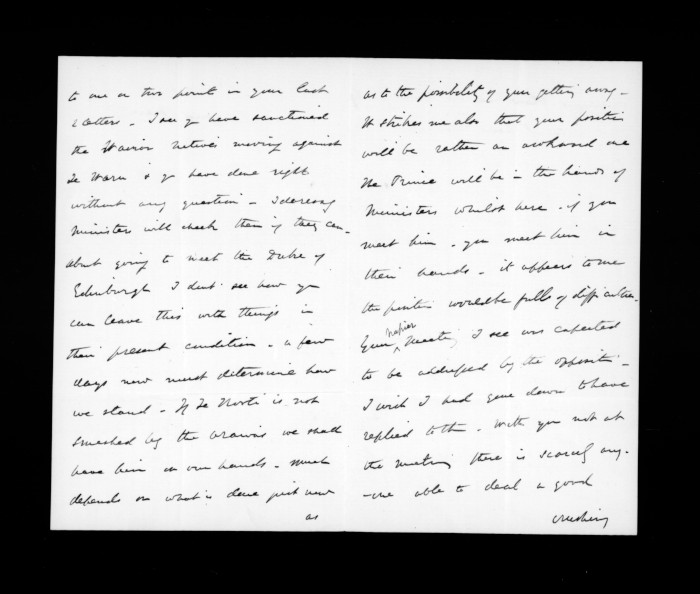 to one or two points in your last
letters - I see you have sanctioned
the Wairoa natives moving against
Te Waru & you have done right
without any question - I daresay
Ministers will check them if they can -
about going to meet the Duke of
Edinburgh I don't see how you
can leave this with things in
their present condition - a few
days now must determine how
we stand - If Te Kooti is not
smashed by the we shall
have him on our hands - much
depends on what is done just now
as
as to the possibility of your getting away -
It strikes me also that your position
will be rather an awkward one
The Prince will be in the hands of
Ministers whilst here - if you
meet him - you meet him in
their hands - it appears to me
the position would be full of difficulties -
Your Napier Meeting I see was expected
to be addressed by the opposition -
I wish I had gone down to have
replied to them - With you not at
the meeting there is scarcely any-
-one able to deal a good
crushing